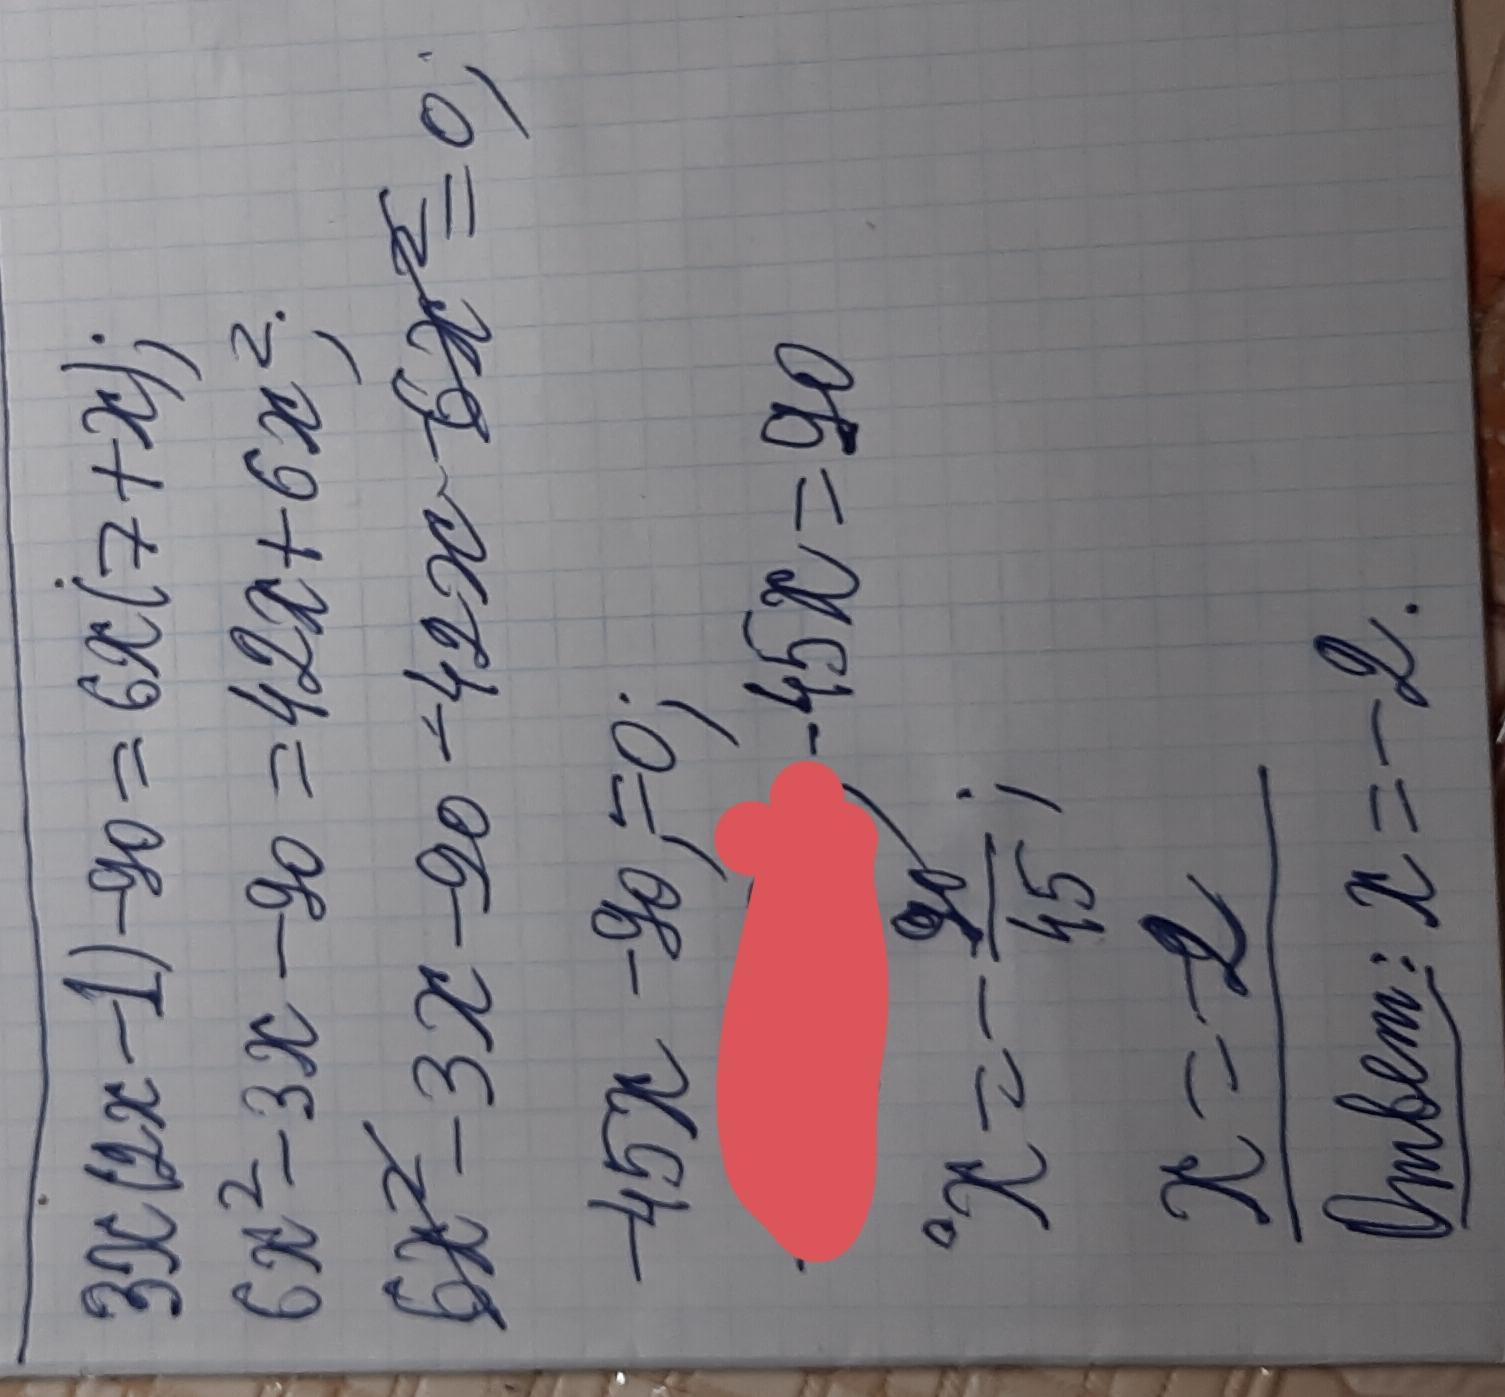 3x(2x-1)-90=6x(7+x);
6x²-3x-90=42x+6x²;
6x²-3x-90-42x-6x²=0;
-45x-90=0;
-45x=90
x=-90/45;
x=-2
Ответ: x=-2.